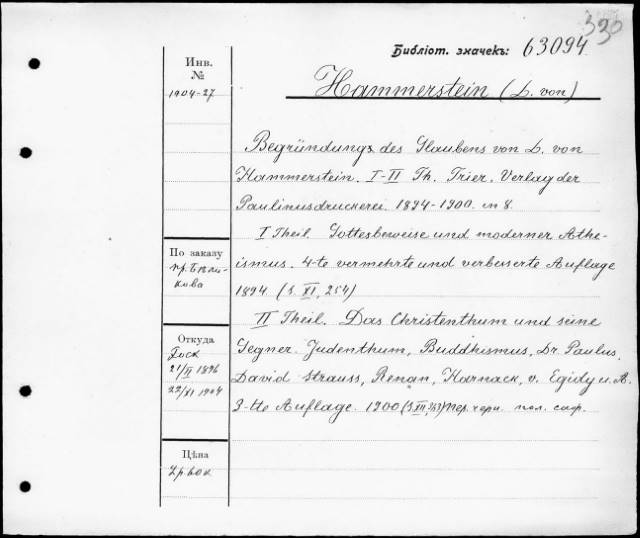 320
Библіот. значекъ: 63094
Инв.
№
1904-27
Hammerstein (L. von)
Begründung des Glaubens von L. von
Hammerstein. I-II Th. Trier. Verlag der
Paulinusdruckerei. 1894-1900. in 8.
I Theil. Gottesbeweise und moderner Athe-
ismus. 4-te vermehrte und verbesserte Auflage
1894 (S. XI, 254)
II Theil. Das Christenthum und seine
Gegner. Judenthum, Buddhismus, Dr. Paulus,
David Strauss, Renan, Harnack, v. Egidy u. A.
3-tte Auflage. 1900 (S XII,) пер. черн. пол. саф.
По заказу
пр. Бѣли-
кова
Откуда
Госк
21/II 1896
22/XI 1904
Цѣна
2р. 60к